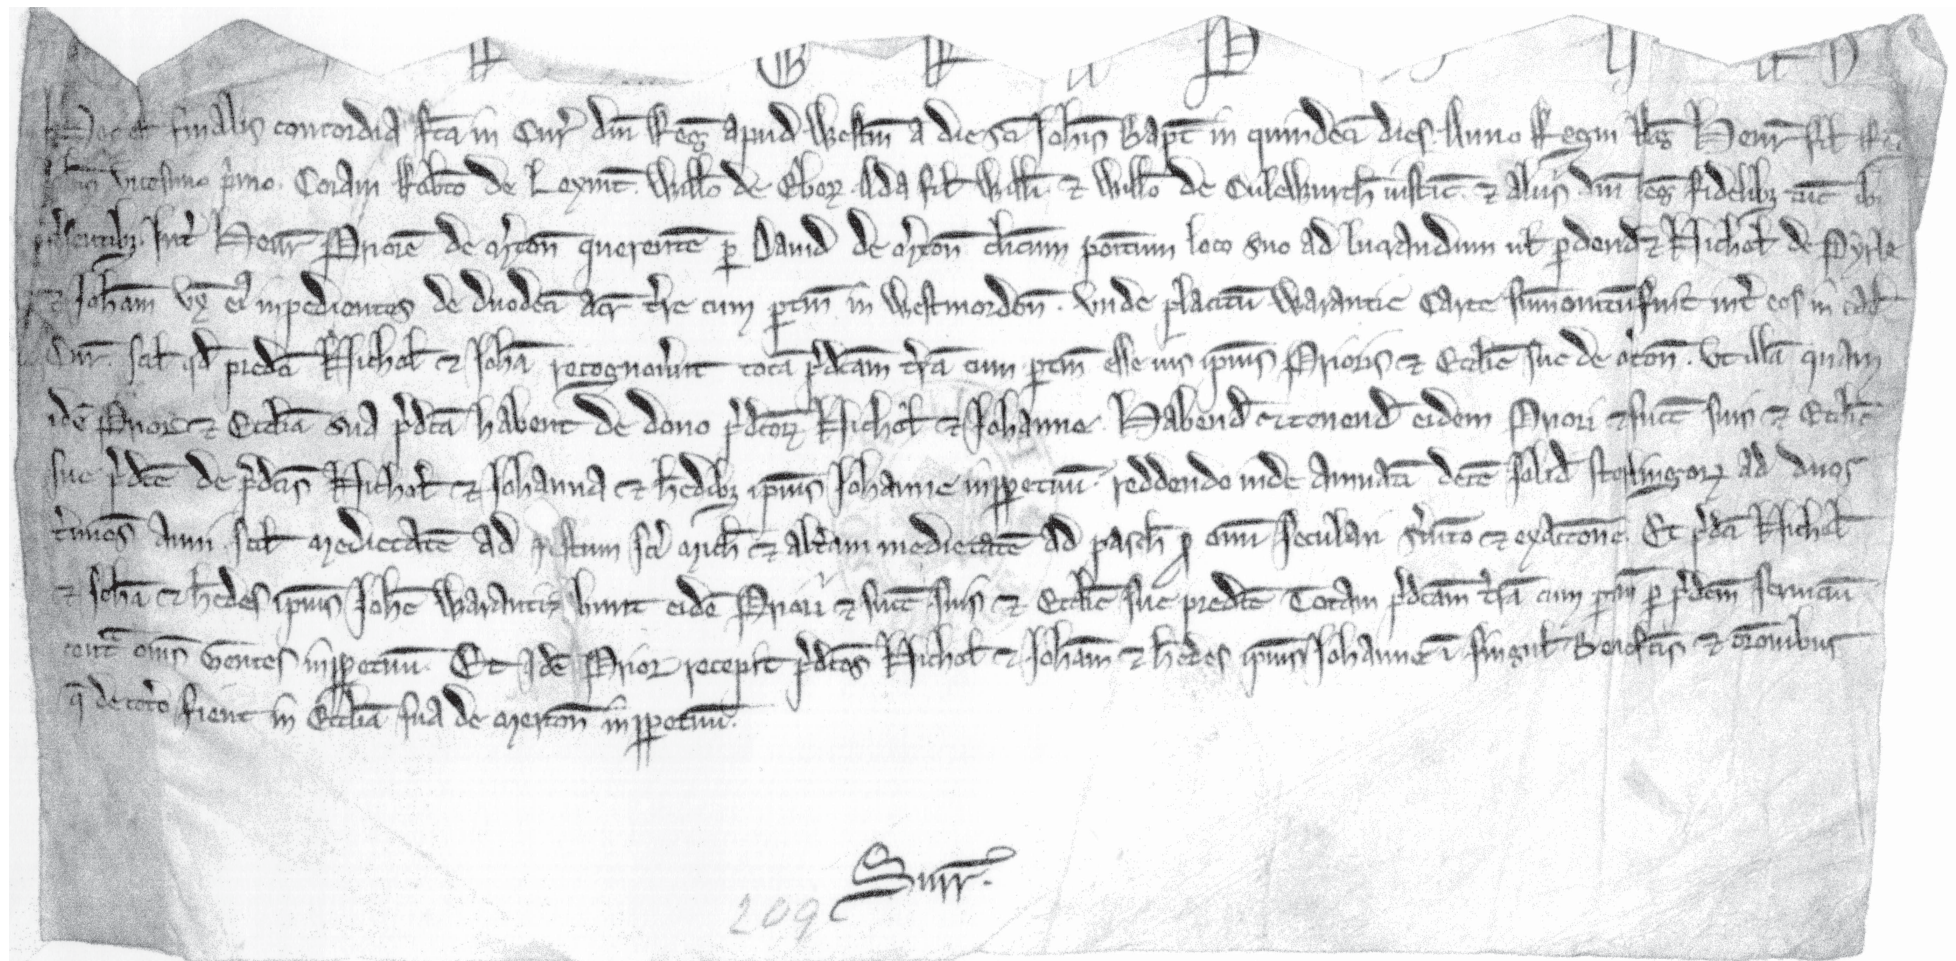 Hec est finalis concordia fc̄a in Cur̄ dn̄i Reḡ apud Westm̄ a die Sc̄i Joh̄is Bapt̄ in quindeci dies. Anno Regni Reḡ Henr̄ fil̄
vicesimo p'mo. Coram Rob̄to de Lexint̄. Will̄o de Ebor̄. Ada fil̄ Will̄i ⁊ Will̄o de Culewurth iustic̄. ⁊ aliis dn̄i Reḡ fidelibȝ tūc ibi
p'sentibȝ. Int̄ Henr̄ Priorē de m̄ton̄ querentē p̱ David de m̄ton̄ cl̄icum positum loco suo ad lucrandum ul̄ p̱dend̄ ⁊ Nichol̄ de Pyrle
⁊ Joh̄am vx̄ ei' inpedientes de duodeci acr̄ t̄re cum p̱tin̄ in Westmordon̄. vnde placitū Warantie Carte sum̄onitū fuit int̄ eos in ead̄
Cur̄. scil̄ qd̄ predc̄i Nichol̄ ⁊ Joh̄a recognov̄unt totā p'dc̄am t̄rā cum p̱tin̄ esse ius ip̄ius Prioris ⁊ Eccl̄ie sue de m̄ton̄. vt illā quam
idē Prior ⁊ Eccl̄ia sua p'dc̄a habent de dono p'dc̄orꝝ Nichol̄ ⁊ Johanne. Habend̄ ⁊ tenend̄ eidem Priori ⁊ succ̄ suis ⁊ Eccl̄ie
sue p'dc̄e de p'dc̄is Nichol̄ ⁊ Johanna ⁊ h̄edibȝ ip̄ius Johanne inp̱petuū. reddendo inde annuatī decē solid̄ sterlingorꝝ ad duos
t̄minos anni. scil̄ medietatē ad festum sc̄i mich̄ ⁊ alt̄am medietatē ad pasch̄ ꝓ omī seculari s̄uito ⁊ exactōne. Et p'dc̄i Nichol̄
⁊ Joh̄a ⁊ h̄edes ip̄ius Joh̄e Warantizabunt eidē Priori ⁊ succ̄ suis ⁊ Eccl̄ie sue predc̄e Totam p'dc̄am t̄rā cum p̱tin̄ p̱ p'dc̄m seruiciū
cont̄ om̄s Gentes inp̱petuū. Et Idē Prior recepit p'dc̄os Nichol̄ ⁊ Joh̄am ⁊ h̄edes ip̄ius Johanne ī singul̄ Benefc̄is ⁊ or̄onibus
q̄ de cet̄o fient in Eccl̄ia sua de merton̄ inp̱petuū.
Surr̄.
209